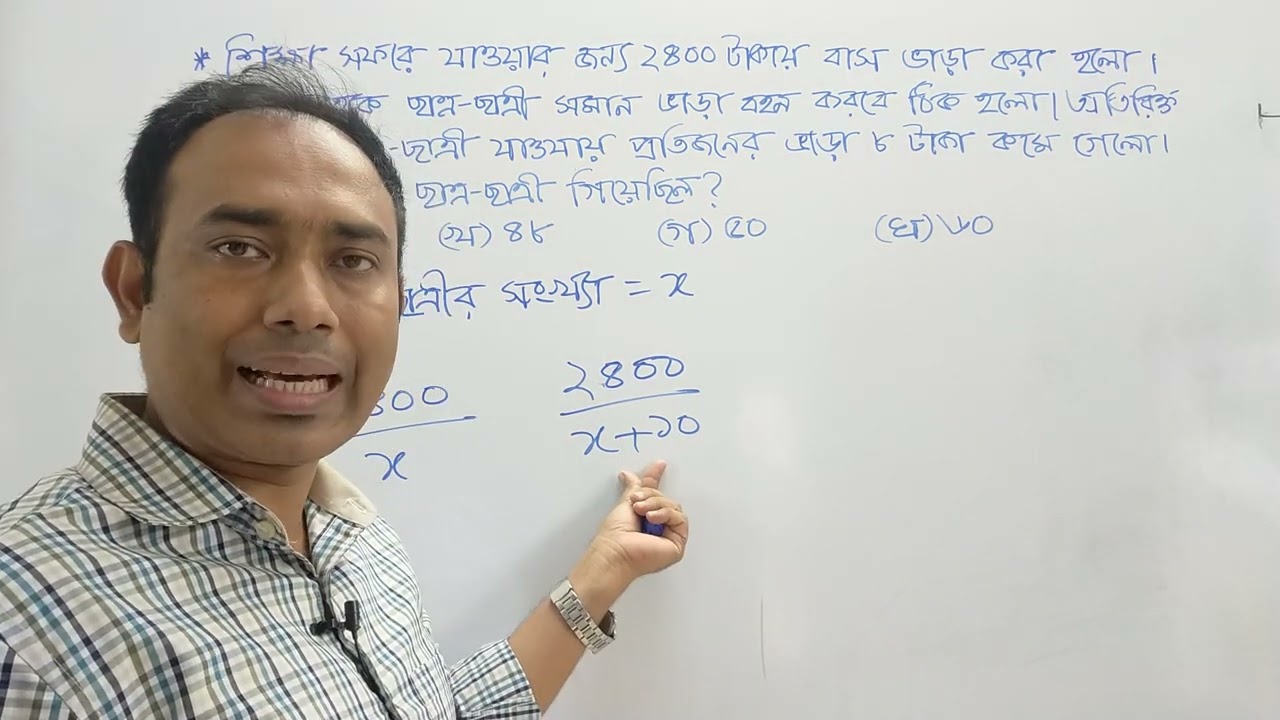 * শিক্ষা সফরে যাওয়ার জন্য ২৪০০ টাকায় বাস ভাড়া করা হলো।
ছাত্র-ছাত্রী সমান ভাড়া বহন করবে ঠিক হলো। অতিরিক্ত
-ছাত্রী যাওয়ায় প্রতিজনের ভাড়া ৮ টাকা কমে গেলো।
ছাত্র-ছাত্রী গিয়েছিল?
(খ) ৪৮ (গ) ৫০ (ঘ) ৬০
ত্রীর সংখ্যা = x
৪০০ ২৪০০
x x+১০